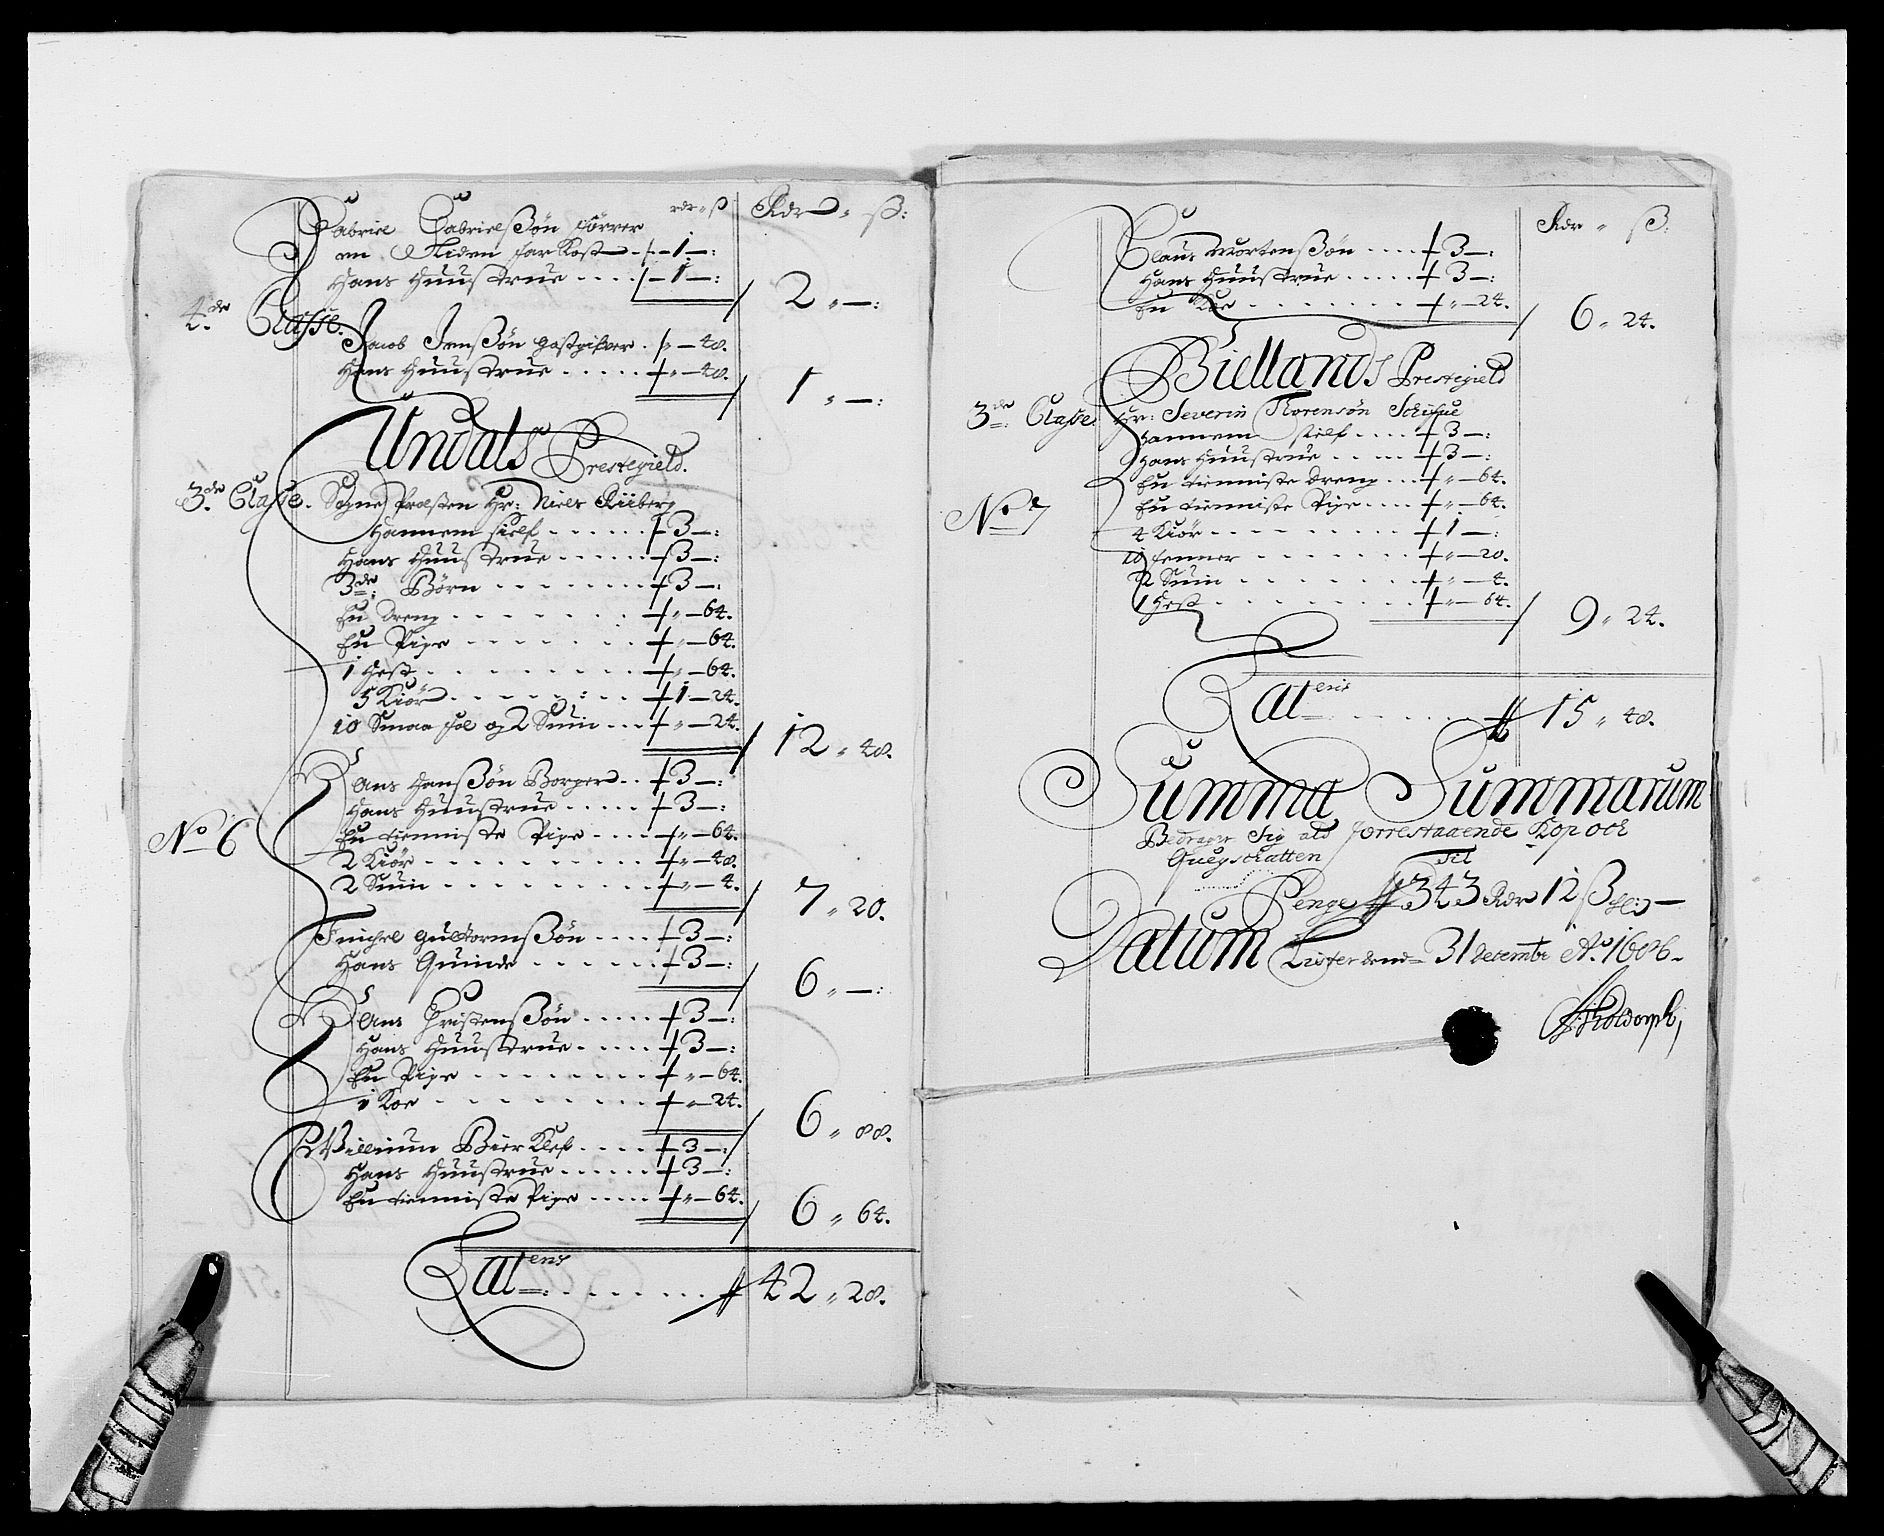 rdr " ß Rdr " ß:
Gabriel Gabrielßøn förrer
en Liden farKost - 1 - :
Hans Huustrue .... 1 - : 2 " - :
4.de Classe.
Jacob Jenßøn gestgifver . " - 48.
Hans Huustrue ..... " - 48. 1 " - :
Undals Prestegield.
3.de Classe. Sogne Presten Hr: Niels Riiberg
Hannem sielf ...... 3 - :
Hans Huustrue ..... 3 - :
3de: Børn ....... 3 - :
En Dreng ........ " - 64.
En Pige ....... " - 64.
1 Hest ........ " - 64.
5 Kiør ....... 1 - 24.
10 Smaa fæ og 2 Suiin ... " - 24. 12 " 48.
Hans Hanßøn Borger .. 3 - :
Hans Huustrue ..... 3 - :
No 6 En tienniste Pige .... " - 64.
2 Kiør ......... " - 48.
2 Suin ......... " - 4. 7 " 20.
Gulstormßøn .... 3 - :
Hans Quinde ...... 3 - : 6 " - :
Hans Christenßøn ..... 3 - :
Hans Huustrue ..... 3 - :
En Pige ........ " - 64.
1 Koe ........ " - 24. 6 " 88.
Willium .... 3 - :
Hans Huustrue ...... 3 - :
En tienniste Pige ..... " - 64. 6 " 64.
Latens ........ 42 " 28.
Rdr " ß.
Claus Mortenßøn .... 3 - :
Hans Huustrue ..... 3 - :
En Koe ........ " - 24. 6 " 24.
Biellands Prestegield
3de: Classe. Hr: Severin Thorensøn
Hannem sielf .... 3 - :
Hans Huustrue .... 3 - :
En tienniste Dreng ... " - 64.
No 7 En tienniste Pige .... " - 64.
4 Kiör ........ 1 - :
10 ....... " - 20.
2 Suin ....... " - 4.
1 Hest ......... " - 64. 9 " 24.
Latens ....... 15 " 48.
Summa Summarum
Bedrager Sig ald forrestaaende Kop och
Quegschatten til
Penge 343 Rdr 12 ß
Datum Lister dend 31 Decembr Ao. 1686.